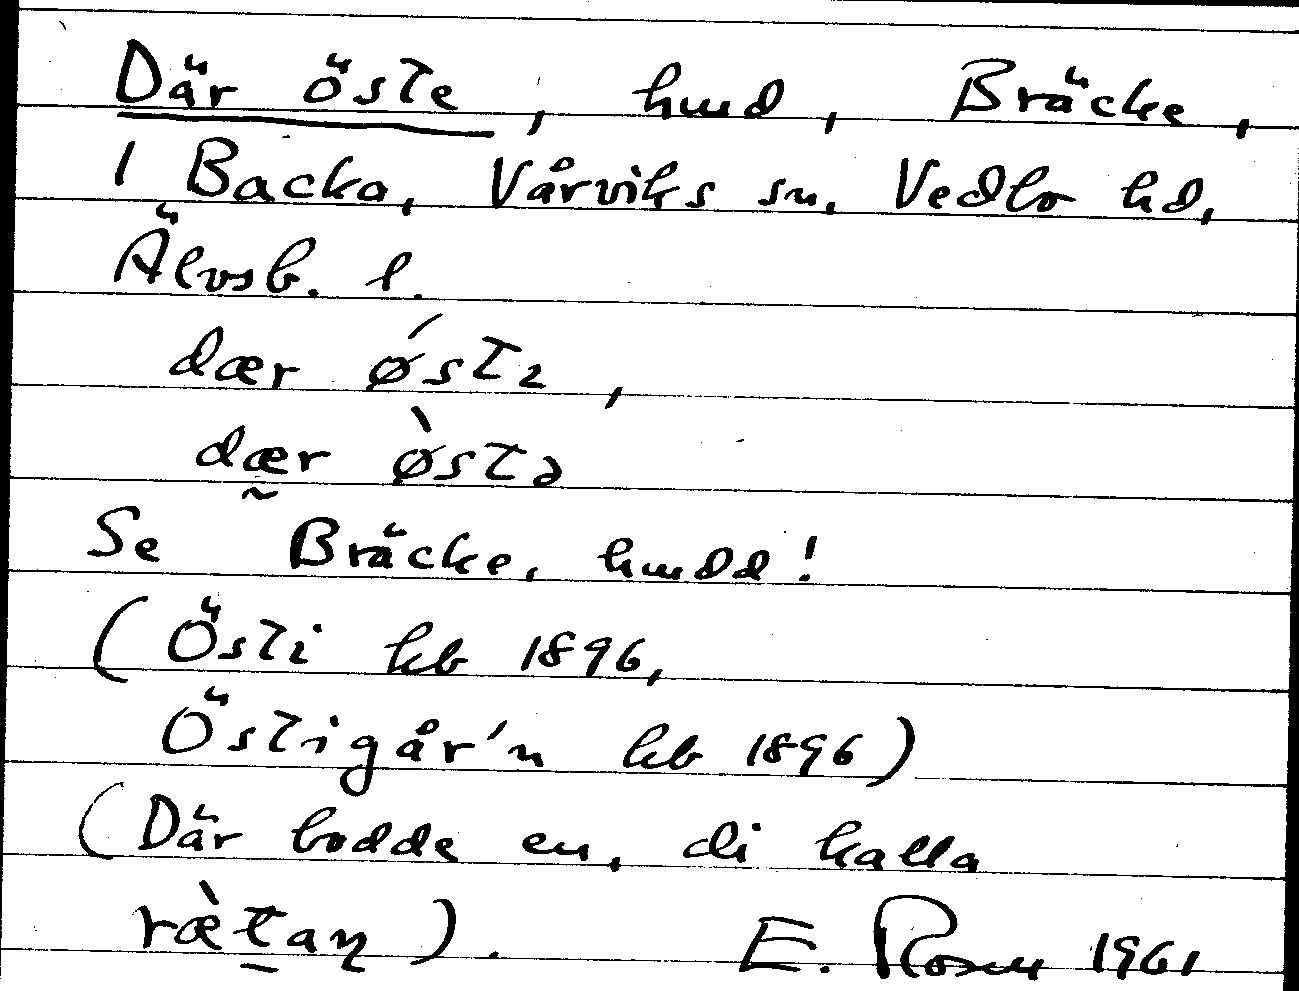 Där öste, hmd, Bräcke,
1 Backa, Vårviks sn. Vedbo hd,
Älvsb. l.
dær ǿstı,
dær ø̀stə
Se Bräcke, hmdd!
(Östi kb 1896,
Östigår'n kb 1896)
(Där bodde en, di kalla
ræ̀taɳ). E. Rosén 1961